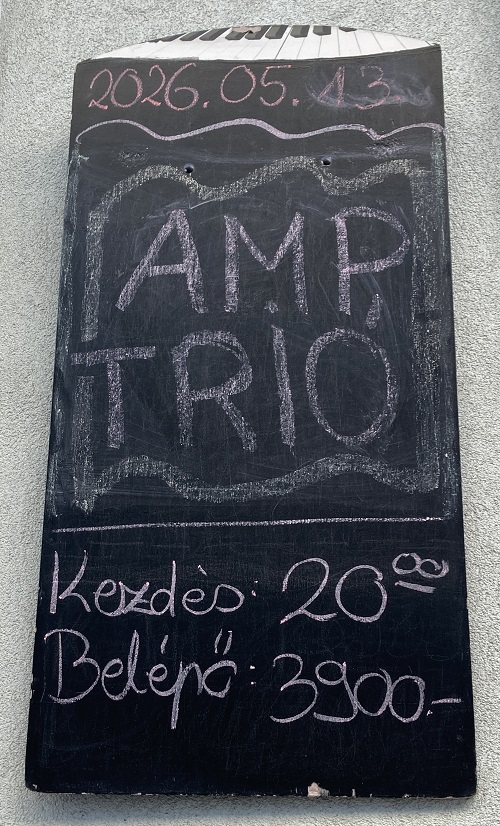 2026.05.13
A.M.P.
TRIO
Kezdés: 20⁰⁰
Belépő: 3900.-